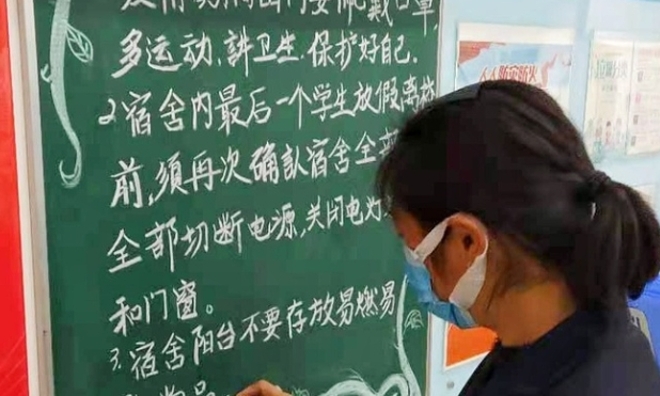 出门要佩戴口罩,
多运动,讲卫生,保护好自己.
2.宿舍内最后一个学生放假离校
前,须再次确认宿舍全
全部切断电源,关闭电灯
和门窗。
3.宿舍阳台不要存放易燃易
物品
人人防灾防火